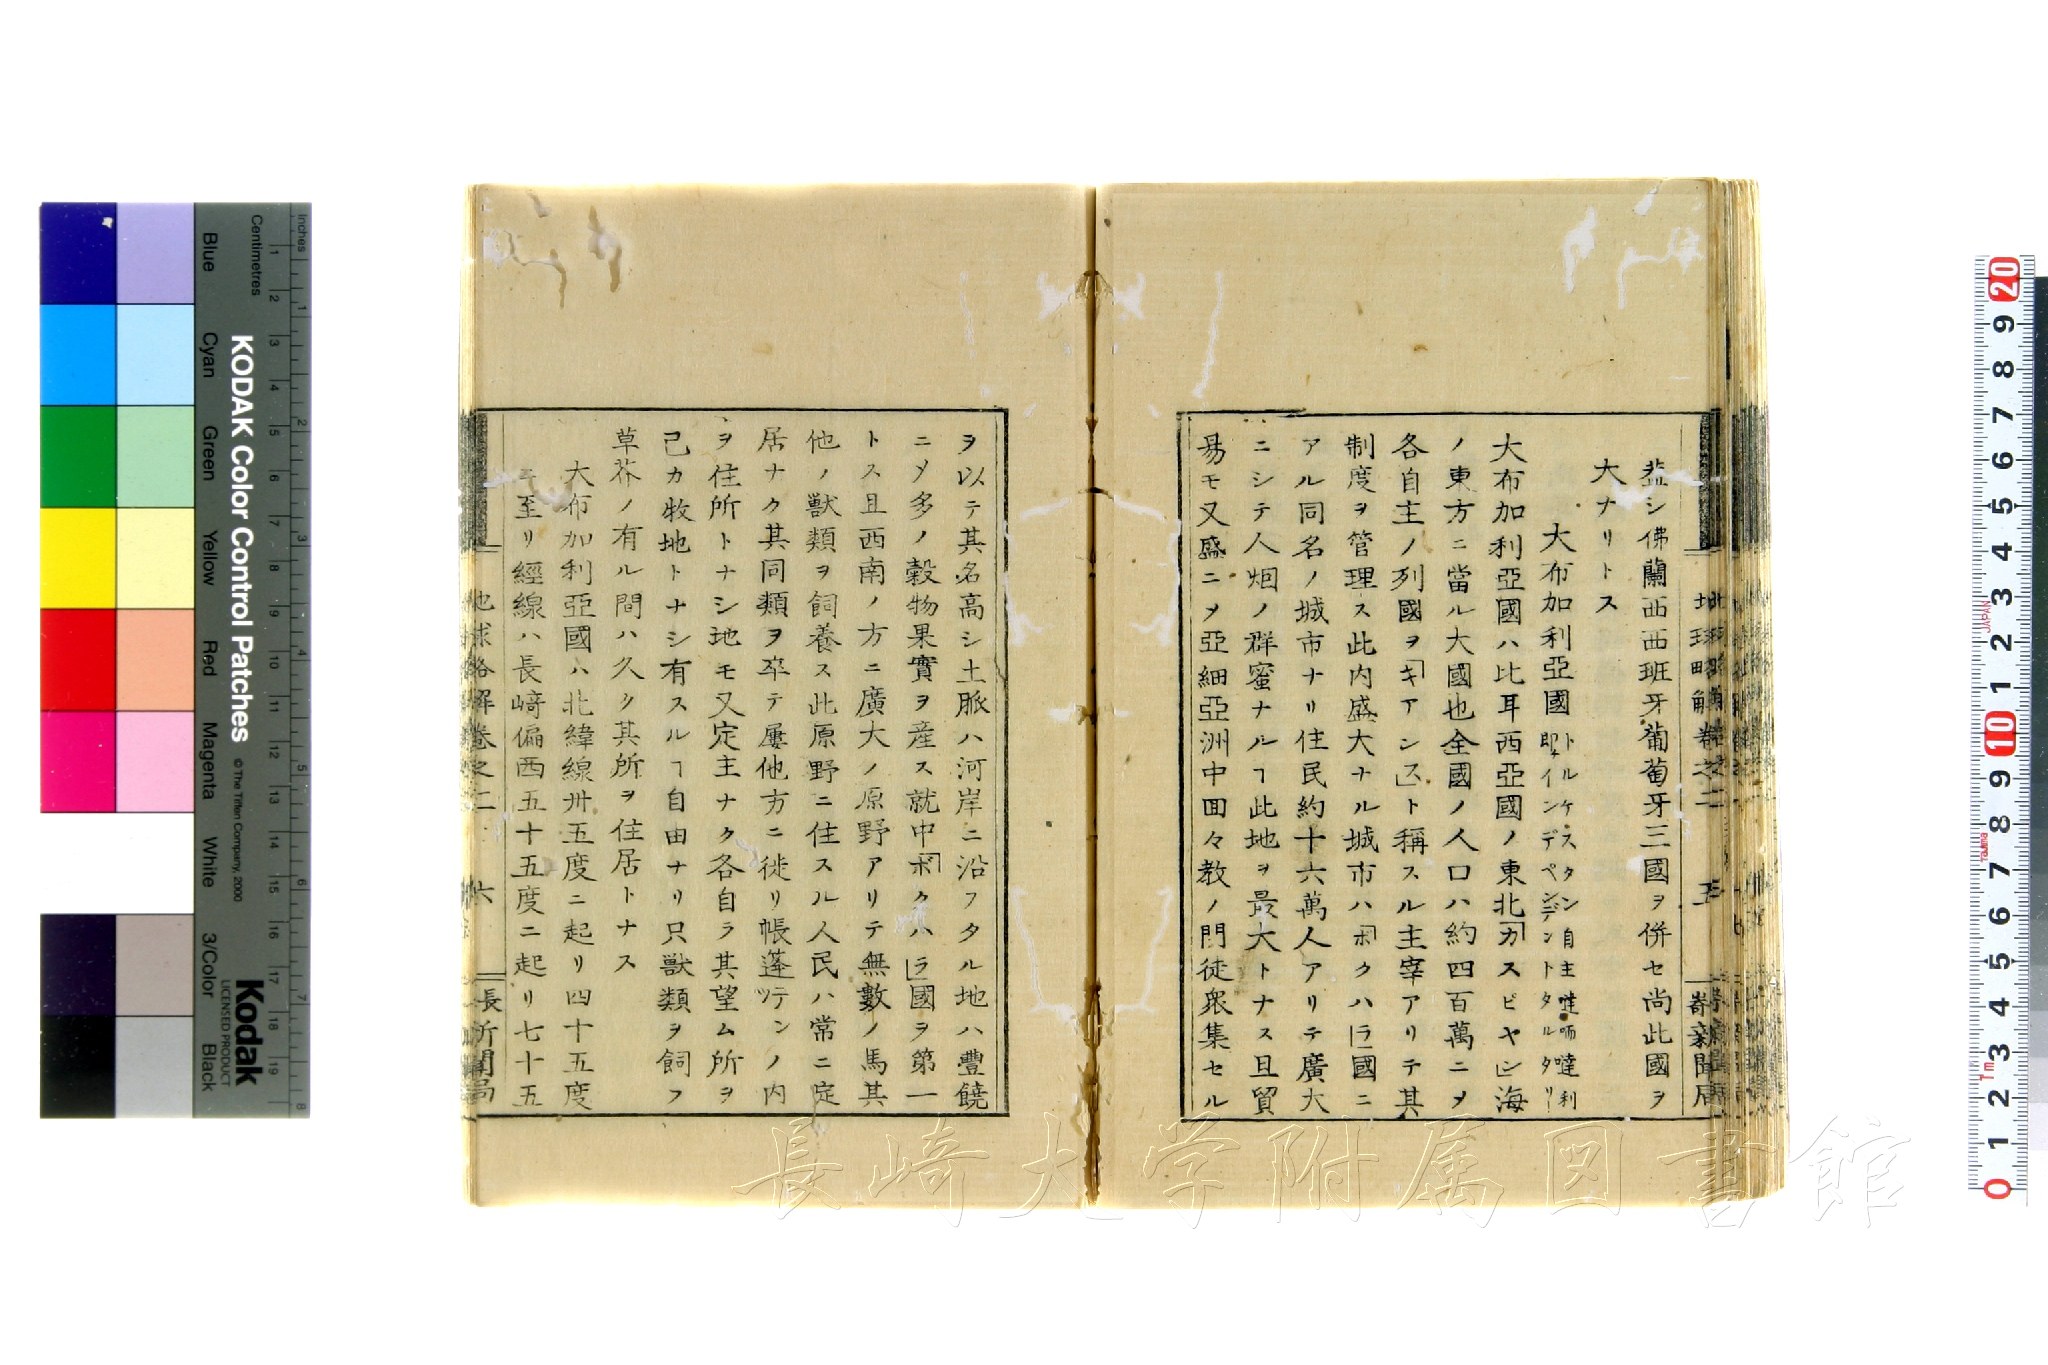 蓋シ佛蘭西西班牙葡萄牙三國ヲ併セ尚此國ヲ
大ナリトス
大布加利亞國
トルケスタン自主韃而韃利
即インデペンデントタルタリー
大布加利亞國ハ比耳西亞國ノ東北「カスピヤン」海
ノ東方ニ當ル大國也全國ノ人口ハ約四百萬ニ〆
各自主ノ列國ヲ「キアンス」ト稱スル主宰アリテ其
制度ヲ管理ス此内盛大ナル城市ハ「ボクハラ」國ニ
アル同名ノ城市ナリ住民約十六萬人アリテ廣大
ニシテ人烟ノ群蜜ナルヿ此地ヲ最大トナス且貿
易モ又盛ニ〆亞細亞洲中回々教ノ門徒衆集セル
地球略解卷之二
五
崎新聞局
ヲ以テ其名高シ土脈ハ河岸ニ沿フタル地ハ豐饒
ニ〆多ノ穀物果實ヲ産ス就中「ボクハラ」國ヲ第一
トス且西南ノ方ニ廣大ノ原野アリテ無數ノ馬其
他ノ獸類ヲ飼養ス此原野ニ住スル人民ハ常ニ定
居ナク其同類ヲ卒テ屢他方ニ徙リ帳蓬ツテンノ内
ヲ住所トナシ地モ又定主ナク各自ラ其望ム所ヲ
己カ牧地トナシ有スルヿ自由ナリ只獸類ヲ飼フ
草芥ノ有ル間ハ久ク其所ヲ住居トナス
大布加利亞國ハ北緯線卅五度ニ起リ四十五度
至リ經線ハ長崎偏西五十五度ニ起リ七十五
地球略解卷之二
六
長
聞局
KODAK Color Control Patches
© The Tiffen Company, 2000
Kodak
LICENSED PRODUCT
Inches
Centimetres
Blue
Cyan
Green
Yellow
Red
Magenta
White
3/Color
Black
長崎大学附属図書館